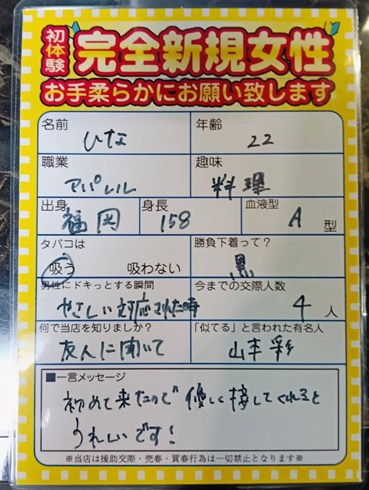 初体験 完全新規女性
お手柔らかにお願い致します
名前 ひな 年齢 22
職業 アパレル 趣味 料理
出身 福岡 身長 158 血液型 A 型
タバコは 吸う 吸わない 勝負下着って? 黒
男性にドキっとする瞬間 やさしい対応された時 今までの交際人数 4 人
何で当店を知りましたか? 友人に聞いて 「似てる」と言われた有名人 山本彩
■一言メッセージ
初めて来たので優しく接してくれると
うれしいです!
※当店は援助交際・売春・買春行為は一切禁止となります※